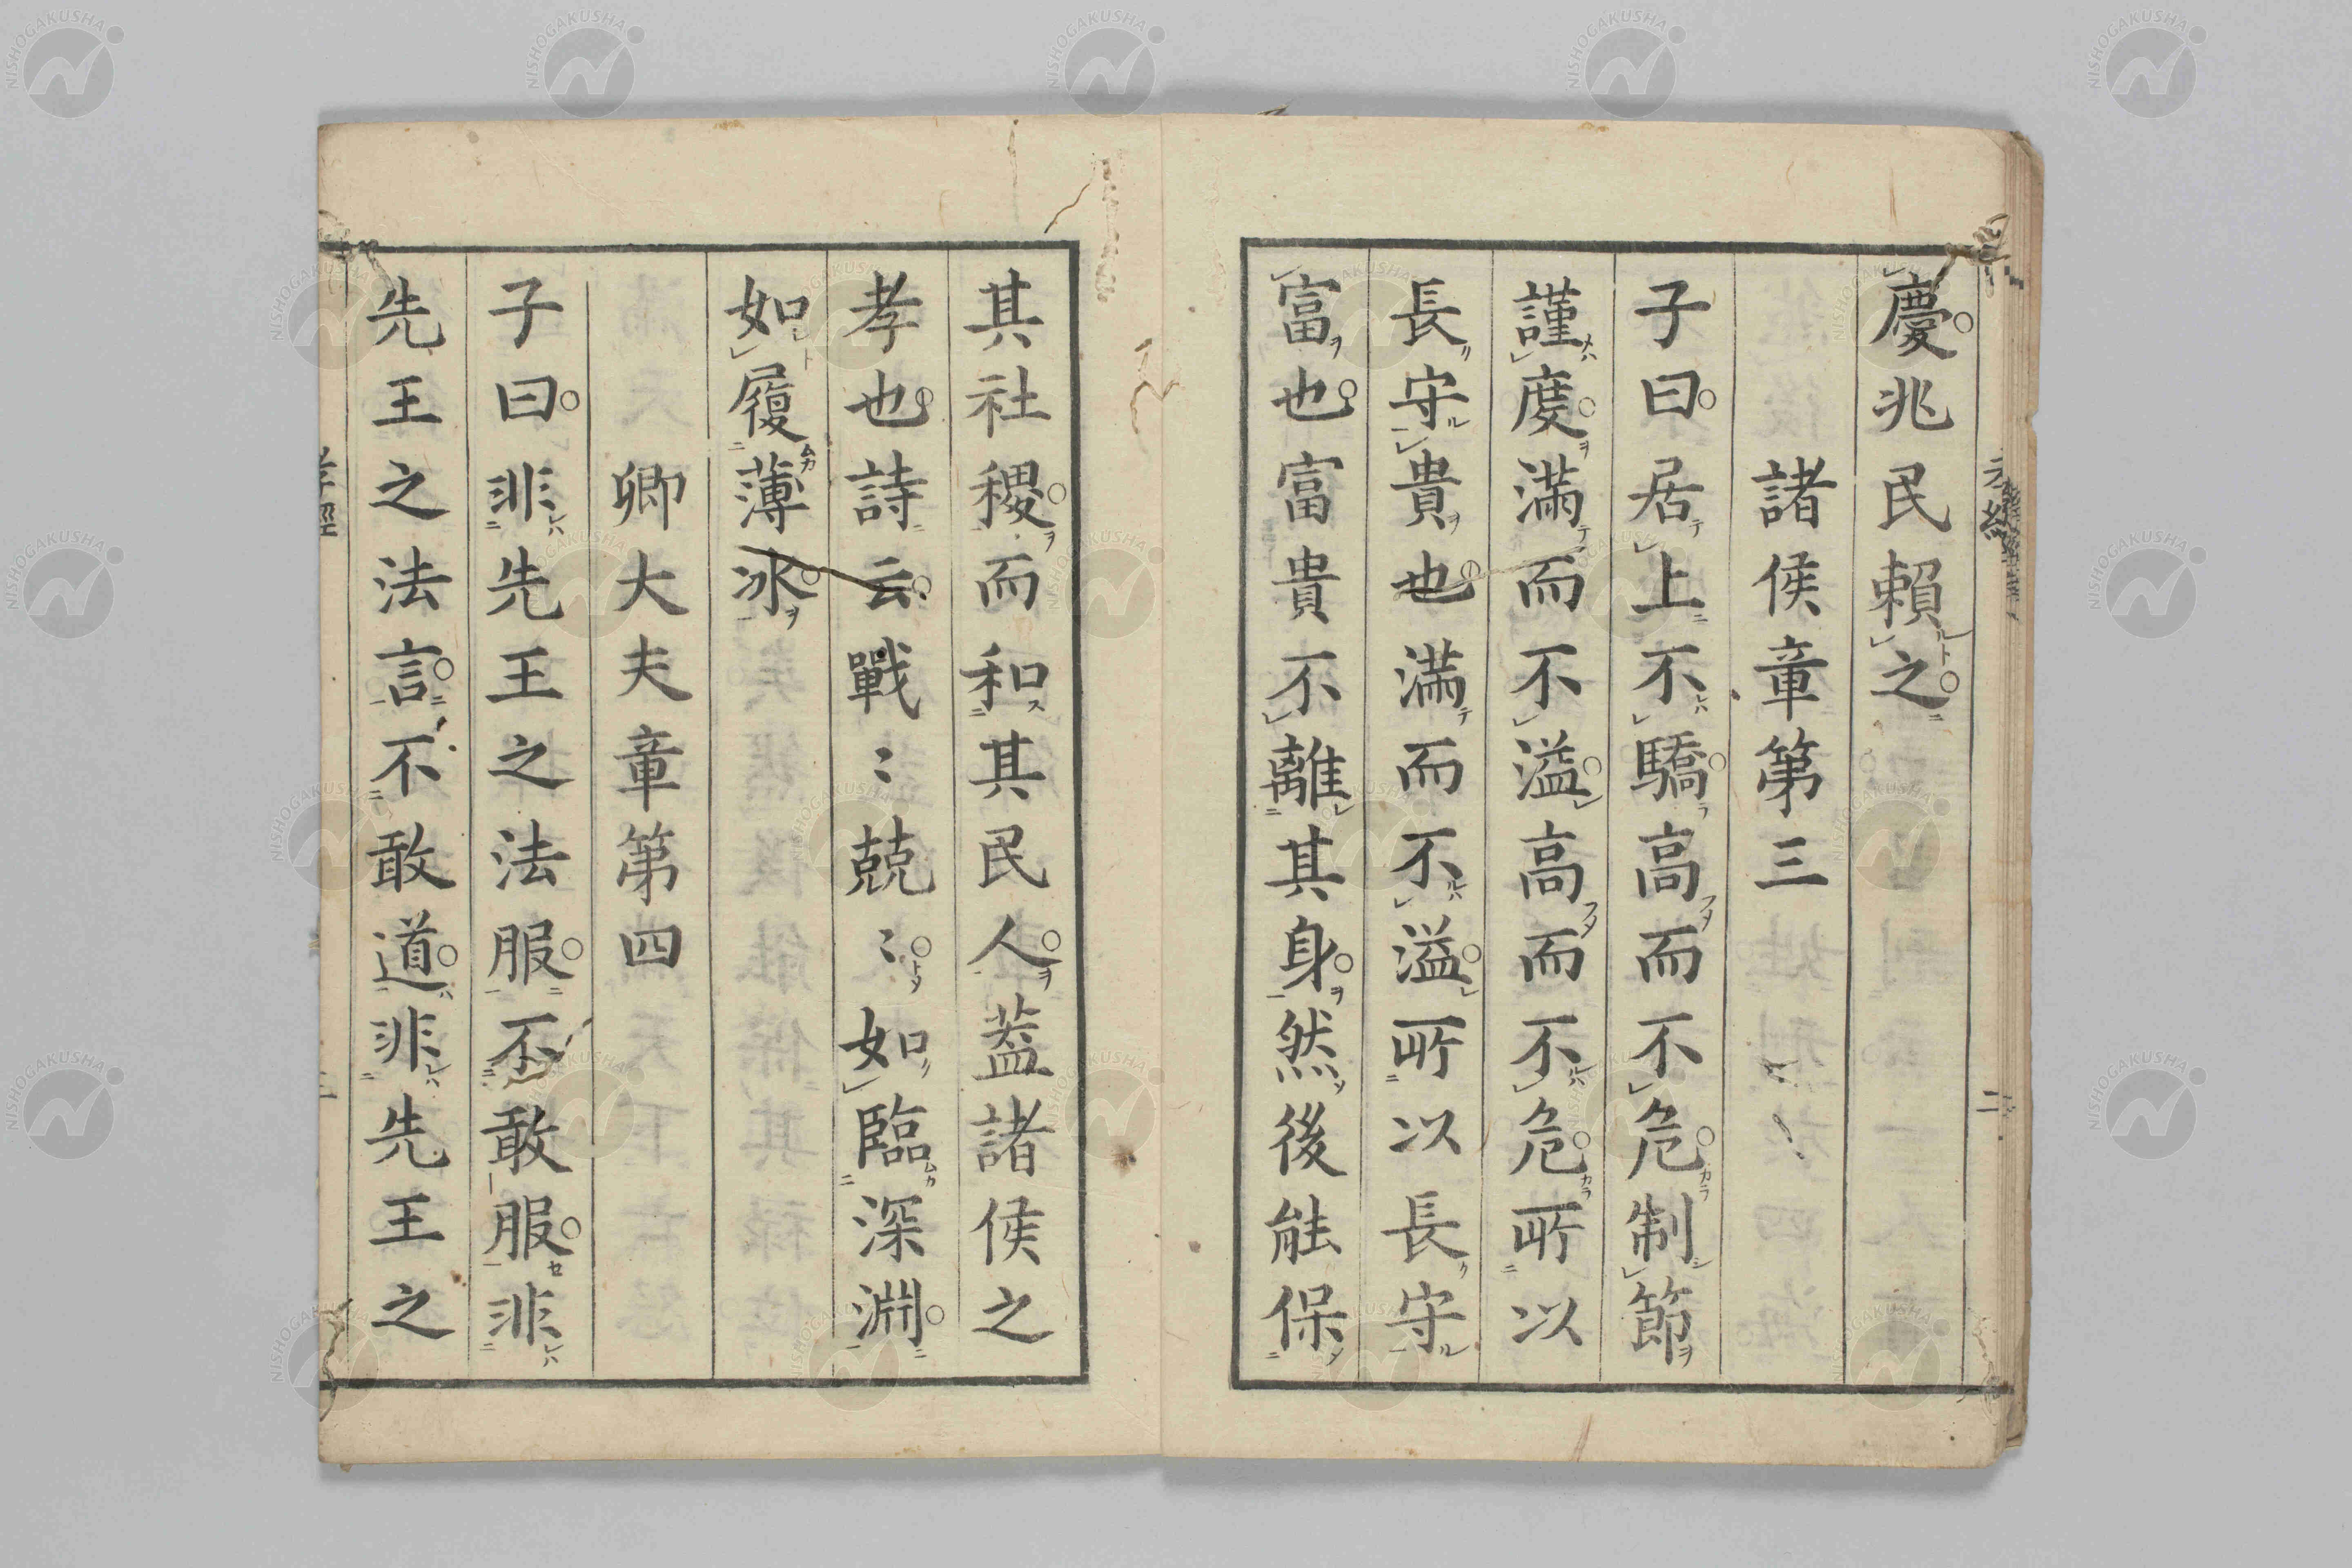 慶兆民賴之
諸侯章第三
子曰居上不驕高而不危制節
謹度滿而不溢高而不危所以
長守貴也滿而不溢所以長守
富也富貴不離其身然後能保
其社稷而和其民人蓋諸侯之
孝也詩云戰〻兢〻如臨深淵
如履薄冰
卿大夫章第四
子曰非先王之法服不敢服非
先王之法言不敢道非先王之
孝經
二
NISHOGAKUSHA